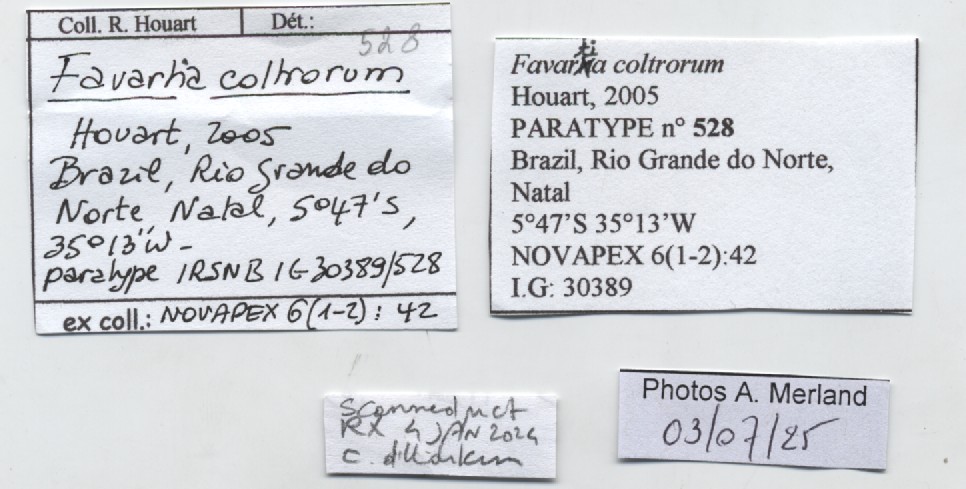 Coll. R. Houart Dét.:
528
Favartia coltrorum
Houart, 2005
Brazil, Rio Grande do
Norte, Natal, 5°47'S,
35°13'W -
paratype IRSNB IG 30389/528
ex coll.: NOVAPEX 6(1-2): 42
Favartia coltrorum
Houart, 2005
PARATYPE n° 528
Brazil, Rio Grande do Norte,
Natal
5°47'S 35°13'W
NOVAPEX 6(1-2):42
I.G: 30389
Scanned
RX 4 JAN 2024
C.
Photos A. Merland
03/07/25